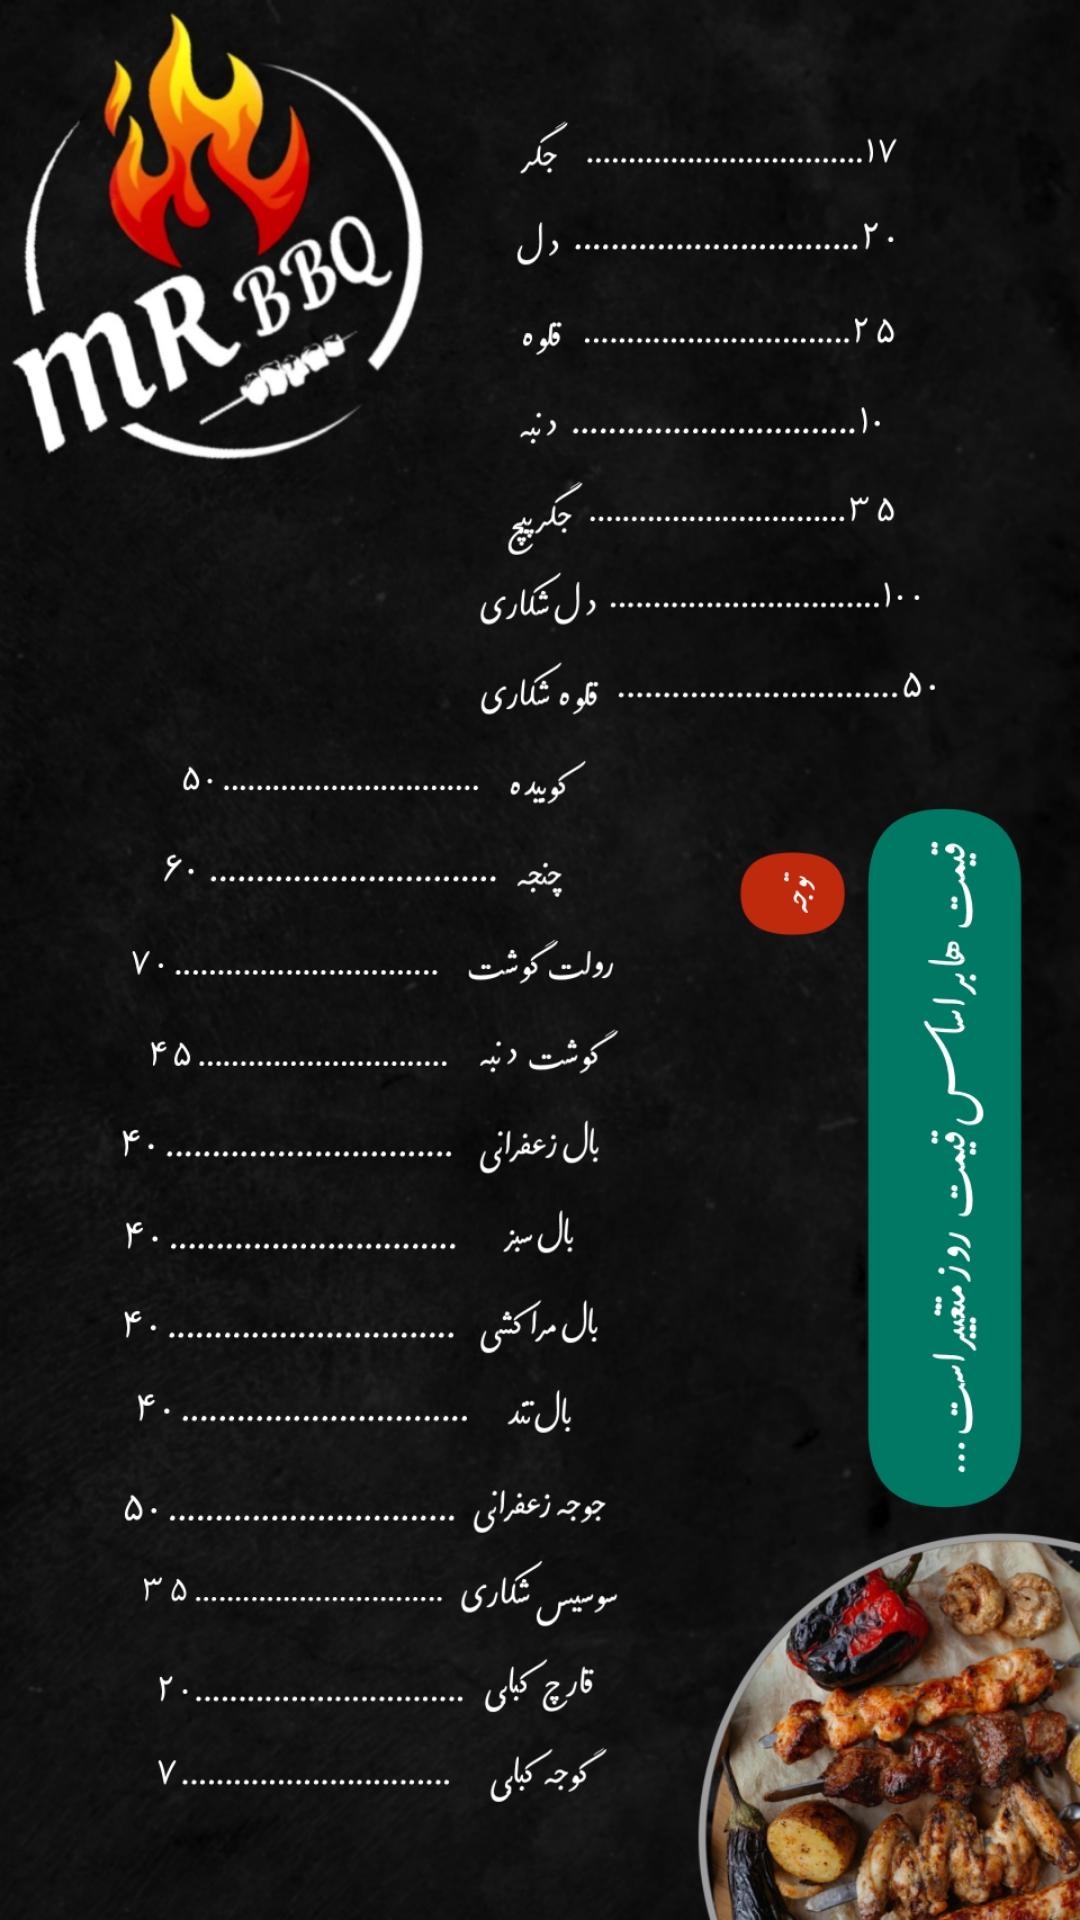 MR BBQ
جگر ..............................۱۷
دل ..............................۲۰
قلوه ..............................۲۵
دنبه ..............................۱۰
جگرپیچ ..............................۳۵
دل شکاری ..............................۱۰۰
قلوه شکاری ..............................۵۰
کوبیده ..............................۵۰
چنجه ..............................۶۰
رولت گوشت ..............................۷۰
گوشت دنبه ..............................۴۵
بال زعفرانی ..............................۴۰
بال سبز ..............................۴۰
بال مراکشی ..............................۴۰
بال تند ..............................۴۰
جوجه زعفرانی ..............................۵۰
سوسیس شکاری ..............................۳۵
قارچ کبابی ..............................۲۰
گوجه کبابی ..............................۷
توجه
قیمت ها بر اساس قیمت روز متغییر است...